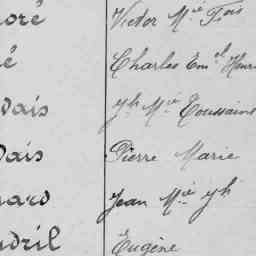 oré Victor M.ie Fois
é Charles Em.el Henri
dais J.h M.ie Toussaint
dais Pierre Marie
nard Jean M.ie J.h
udril Eugène